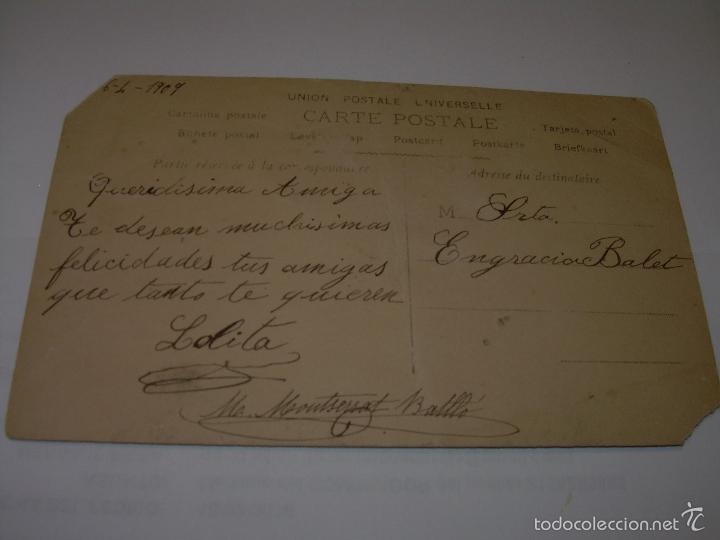 1909
UNION POSTALE UNIVERSELLE
CARTE POSTALE
Cartolina postale
Tarjeta postal
Postcard Postkarte Briefkaart
Partie réservée à la correspondance
Adresse du destinataire
Queridisima Amiga
Te desean muchisimas
felicidades tus amigas
que tanto te quieren
Lolita
Ma. Montserrat Batlló
M Srta.
Engracia Balet
todocoleccion.net